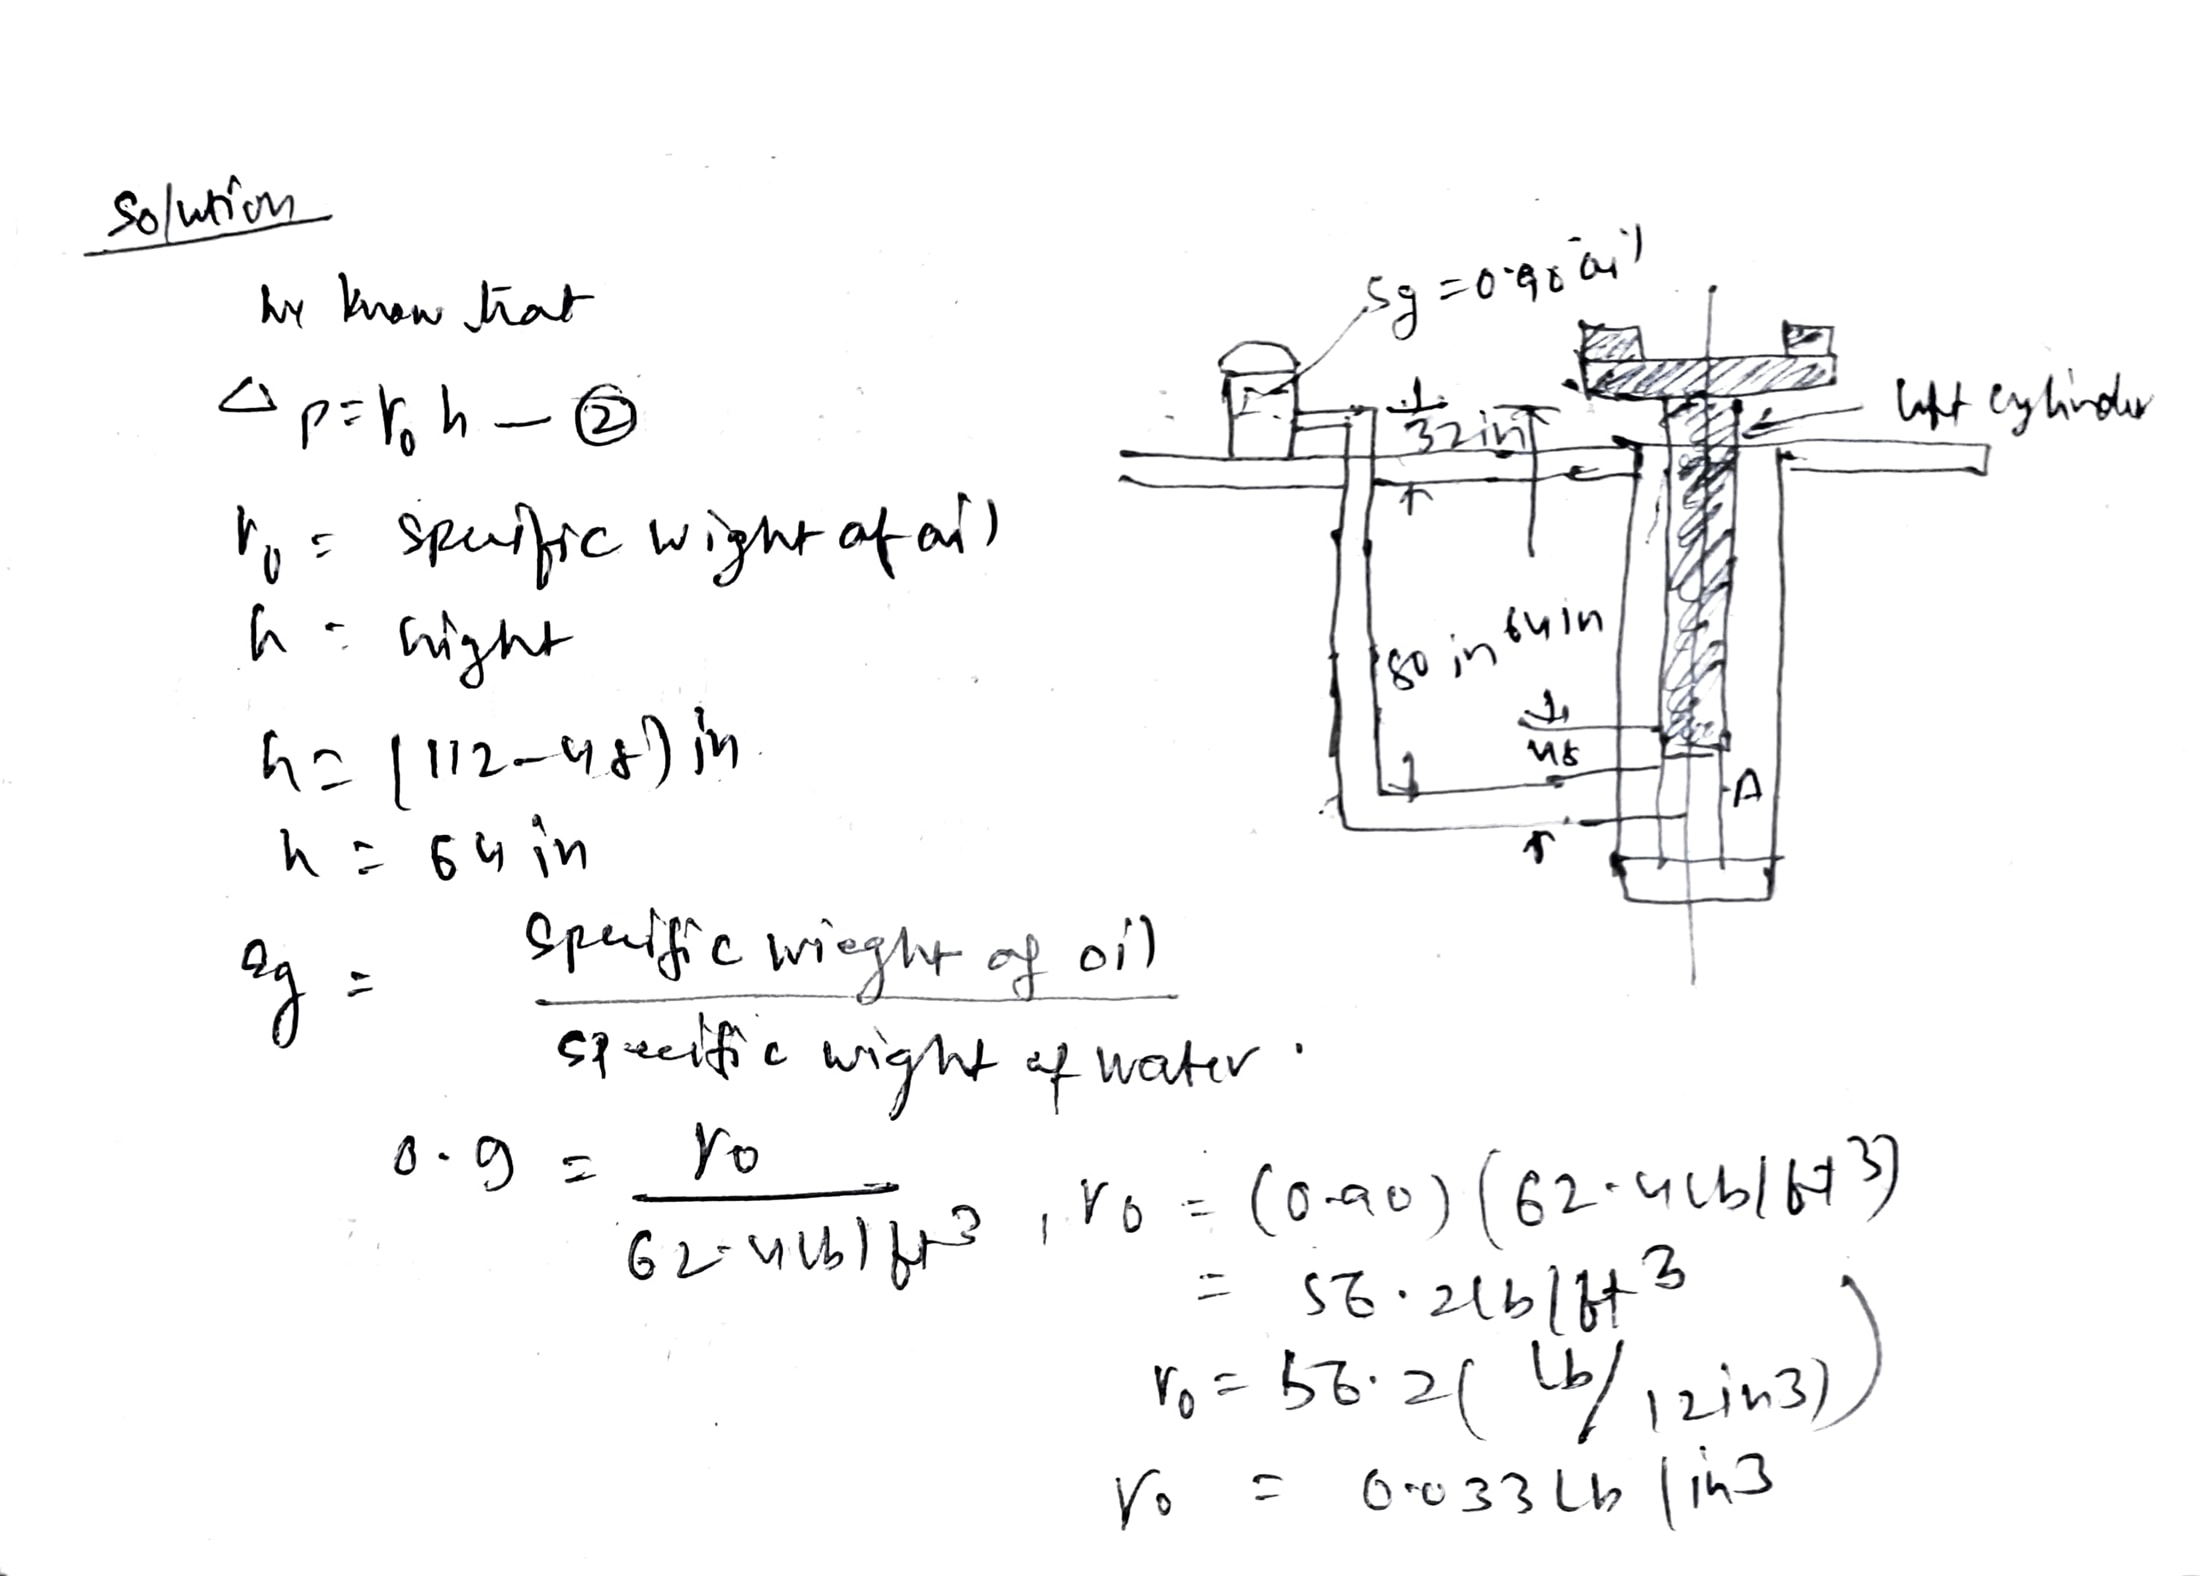 Solution
we know that
Δp = γ₀h — ②
γ₀ = specific wight of oil
h = hight
h = (112-48) in.
h = 64 in
sg = specific wieght of oil / specific wight of water.
0.9 = γ₀ / 62.4 lb/ft³ , γ₀ = (0.90) (62.4 lb/ft³)
= 56.2 lb/ft³
γ₀ = 56.2 ( lb/12in3))
γ₀ = 0.033 Lb/in3
sg = 0.90 oil
32 in
left cylinder
64 in
80 in
48
A